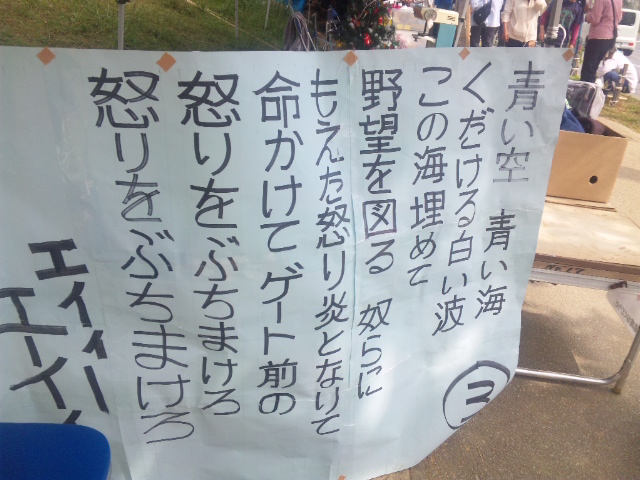 青い空 青い海
くだける白い波
この海埋めて
野望を図る 奴らに
もえた怒り炎となりて
命かけてゲート前の
怒りをぶちまけろ
怒りをぶちまけろ
エイィー
エーイ
3